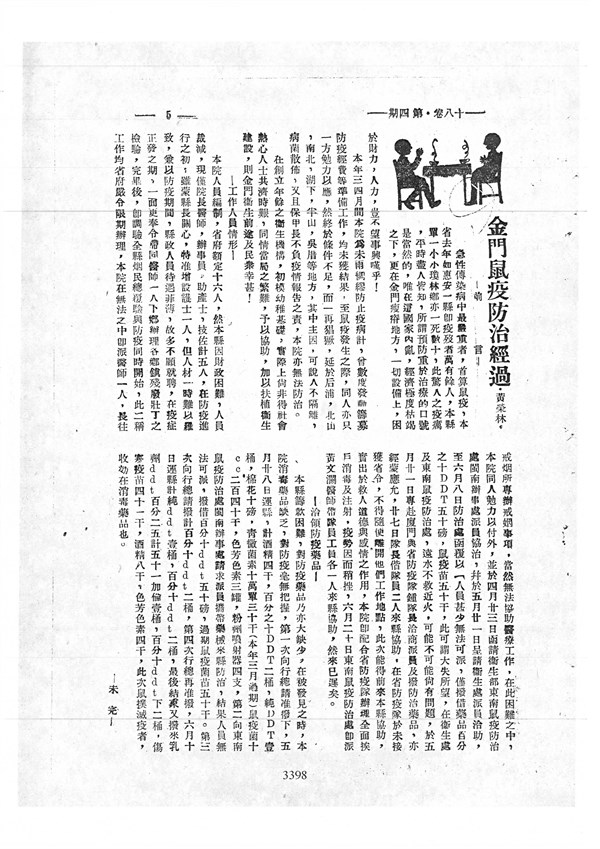 十八卷・第四期
5
金門鼠疫防治經過
黃榮林
前言
急性傳染病中最嚴重者，首算鼠疫，本
省去年如惠安一縣即疫殁者萬有餘人，本縣
單一小小瓊林鄉亦一死數十，此驚人之疫癘
，平時盡人皆知，所謂預防重於治療的口號
是當然的，唯在這國家內亂，經濟極度枯竭
之下，更在金門瘦瘠地方，一切設備上，困
於財力，人力，豈不望事興嘆乎！
本年三四月間本院為未雨綢繆防止疫病計，曾數度發動籌募
防疫經費等準備工作，均未獲結果，至鼠疫發生之際，同人亦只
一方勉力以應，然終於條件不足，而一再猖獗，延於后浦，北山
，南北，湖下，半山，吳厝等地方，其中主因，可說人不隔離，
病菌散佈，又且保甲長不負疫情報告之責，本院亦無法防治。
在創立年餘之衛生機構，初模幼稚基礎，實際上尚非得社會
熱心人士共濟時艱，同情當局之繁難，予以協助，加以扶植衛生
建設，則金門衛生前途及民衆幸甚！
—工作人員情形—
本院人員編制，省府額定十六人，然本縣因財政困難，人員
裁減，現僅院長醫師，辦事員，助產士，技佐計五人，在防疫進
行之初，雖蒙縣長關心，特准增設護士一人，但人材一時難以羅
致，爰以防疫期間，縣政人員待遇菲薄，故多不願就聘，在疫症
正發之期，一面更奉令帶同醫師一人下鄉辦理各鄉鎮殘廢壯丁之
檢驗，完畢後，卽調驗全縣烟民總複驗與防疫同時開始，此二稱
工作均省府嚴令限期辦理，本院在無法之中卽派醫師一人，長往
戒烟所專辦戒烟事項，當然無法協助醫療工作，在此困難之中，
本院同人勉力以外，並於四月廿三日函請衛生部東南鼠疫防治
處閩南辦事處派員協治，幷於五月廿一日呈請衛生處派員洽助，
至六月八日防治處函覆以「人員甚少無法可派，僅撥借藥品百分
之十DDT五十磅，鼠疫苗五十千，此可謂大失所望，在衛生處
及東南鼠疫防治處，遠水不救近火，可能不可能何有問題，於五
月廿一日專赴廈門與省防疫隊鍾隊長洽商派員及撥防治藥品，亦
經蒙應允，廿七日隊長偕隊員二人來縣協助，在省防疫隊於未接
獲省令，不得隨便離開他們工作地點，此次能得前來本縣協助，
實出於救人道德與感情之作用，本院卽配合省防疫隊辦理全面挨
戶消毒及注射，疫勢因而稍挫，六月二十日東南鼠疫防治處卽派
黃文瀾醫師帶隊員工員各一人來縣協助，然來已遲矣。
—洽領防疫藥品—
本縣籌款困難，對防疫藥品乃亦大缺少，在被發見之時，本
院消毒藥品缺乏，對防疫毫無把握，第一次向行總請准撥下，五
月廿八日運縣，計酒精四千，百分之十DDT二桶，純DDT壹
桶，棉花十磅，青黴菌素十萬單三十千（本年三月過期）鼠疫菌十
cc二百四十千，色芳色素三罐，粉州噴射器四支，第二向東南
鼠疫防治處閩南辦事處請求派員攜帶藥械來縣防治，結果人員無
法可派，撥借百分十ddt五十磅，過期鼠疫菌苗五十千。第三
次向行總請撥計百分十ddt二桶，第四次行總再准撥，六月十
日運縣計純ddt壹桶，百分十ddt二桶，最後結束又撥來乳
劑ddt百分二五計五十一加侖壹桶，百分十ddt下二桶，傷
寒疫苗四十一千，酒精八千，色芳色素四千，此次鼠撲滅疫者，
收効在消毒藥品也。
—未完—
3398